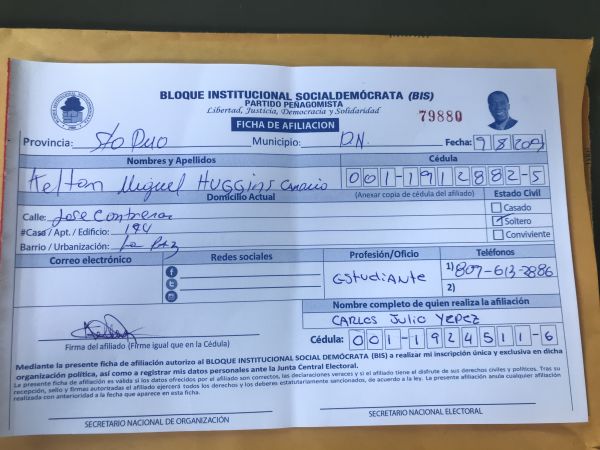 BLOQUE INSTITUCIONAL SOCIALDEMÓCRATA (BIS)
PARTIDO PEÑAGOMISTA
Libertad, Justicia, Democracia y Solidaridad
79880
FICHA DE AFILIACION
Provincia: Sto Dgo Municipio: D.N. Fecha: 9/8/2019
Nombres y Apellidos Cédula
Kelton Miguel HUGGins 001-1912882-5
Domicilio Actual (Anexar copia de cédula del afiliado) Estado Civil
Calle: Jose Contreras Casado
#Casa / Apt. / Edificio: 194 Soltero
Barrio / Urbanización: La Paz Conviviente
Correo electrónico Redes sociales Profesión/Oficio Teléfonos
Estudiante 1) 809-613-2886
2)
Nombre completo de quien realiza la afiliación
CARLOS Julio YEPEZ
Cédula: 001-1924511-6
Firma del afiliado (Firme igual que en la Cédula)
Mediante la presente ficha de afiliación autorizo al BLOQUE INSTITUCIONAL SOCIAL DEMÓCRATA (BIS) a realizar mi inscripción única y exclusiva en dicha
organización política, así como a registrar mis datos personales ante la Junta Central Electoral.
La presente ficha de afiliación es valida si los datos ofrecidos por el afiliado son correctos, las declaraciones veraces y si el afiliado tiene el disfrute de sus derechos civiles y políticos. Tras su
recepción, sello y firmas autorizadas el afiliado ejercerá todos los derechos y los deberes estatutariamente sancionados, de acuerdo a la ley. La presente afiliación anula cualquier afiliación
realizada con anterioridad a la fecha que aparece en esta ficha.
SECRETARIO NACIONAL DE ORGANIZACIÓN SECRETARIO NACIONAL ELECTORAL